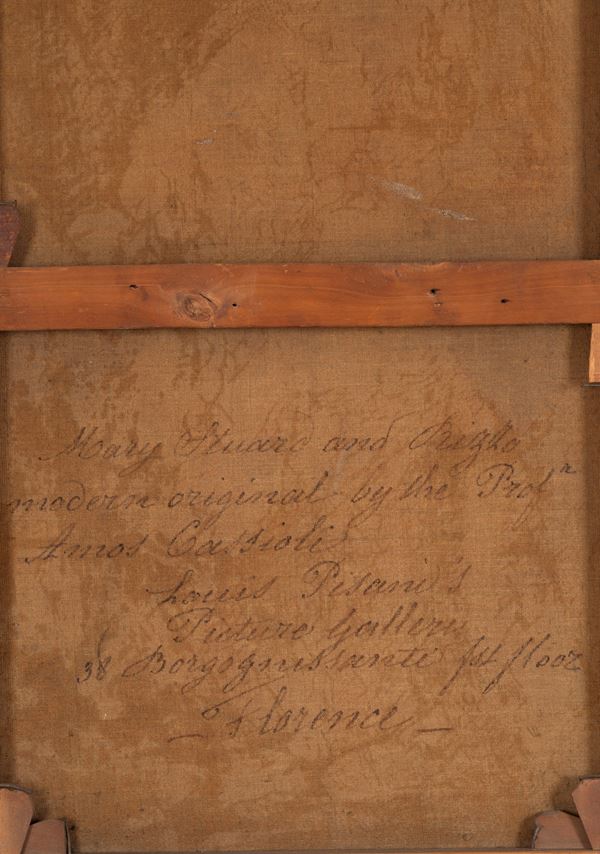 Mary Stuard and Rizzko
modern original by the Prof r
Amos Cassioli
Louis Pisani's
Picture Gallery
38 Borgognissanti fst floor
- Florence -